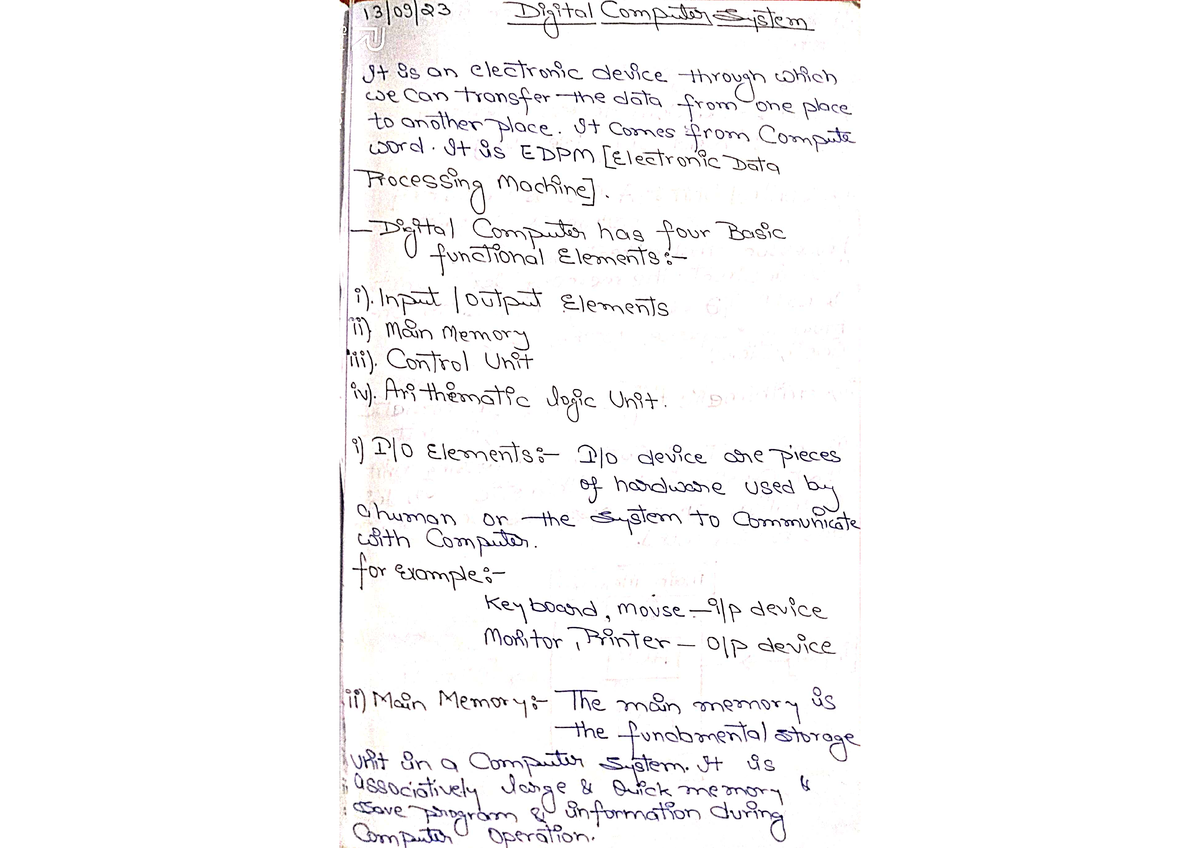 13/09/23 Digital Computer System
It is an electronic device through which
we can transfer the data from one place
to another place. It comes from Compute
word. It is EDPM [Electronic Data
Processing Machine].
- Digital Computer has four Basic
functional Elements:-
i). Input / Output Elements
ii) Main Memory
iii). Control Unit
iv). Arithematic logic Unit.
i) I/O Elements:- I/O device are pieces
of hardware used by
a human or the system to communicate
with Computer.
for example:-
Keyboard, mouse - i/p device
Monitor, Printer - O/P device
ii) Main Memory:- The main memory is
the fundamental storage
unit in a Computer System. It is
associatively large & Quick memory &
save program & information during
Computer Operation.